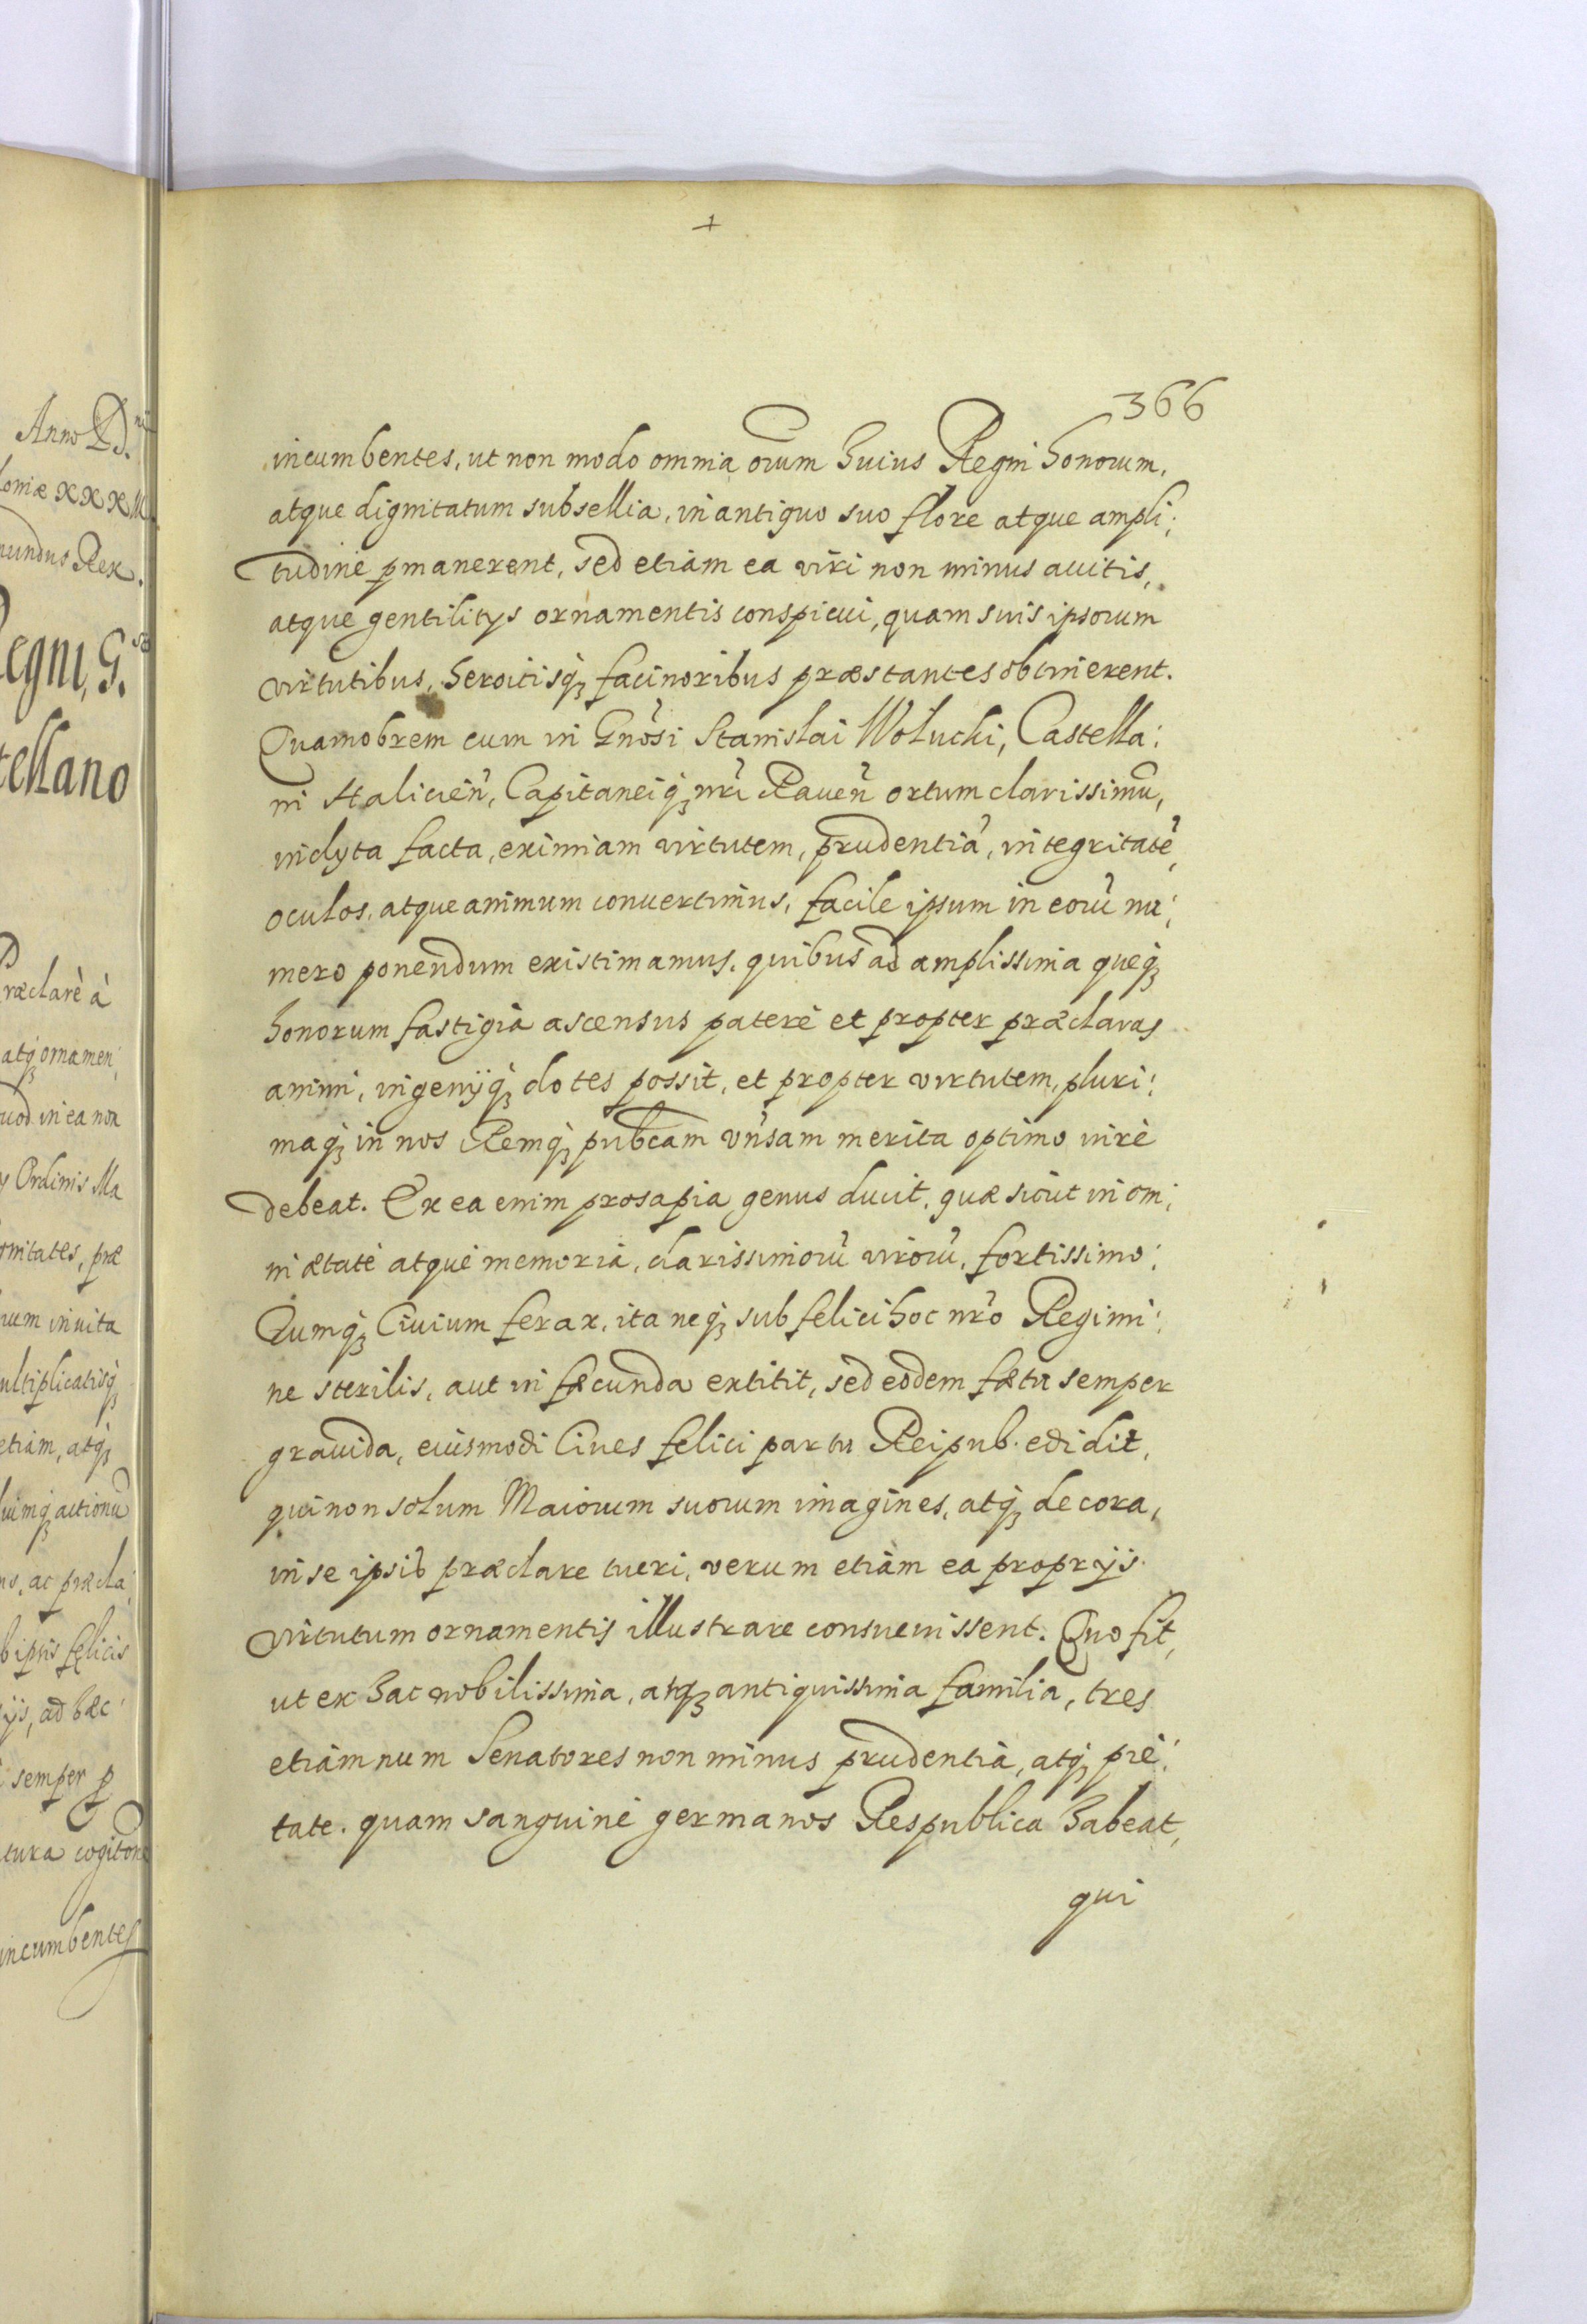 366
incumbentes, ut non modo omnia orum huius Regni honorum,
atque dignitatum subsellia, in antiquo suo flore atque ampli:
tudine pmanerent, sed etiam ea viri non minus auitis,
atque gentilitys ornamentis conspicui, quam suis ipsorum
virtutibus, heroicisq; facinoribus præstantes obtinerent.
Quamobrem cum in Gnosi Stanislai Wołucki, Castella:
ni Halicien, Capitaneiq; nri Rauen ortum clarissimu,
inclyta facta, eximiam virtutem, prudentia, integritate,
oculos, atque animum conuertimus, facile ipsum in eoru nu:
mero ponendum existimamus, quibus ad amplissima queq;
honorum fastigia ascensus patere et propter præclaras
animi, ingenijq; dotes possit, et propter virtutem, pluri:
maq; in nos Remq; pubcam vnsam merita optimo iure
debeat. Ex ea enim prosapia genus ducit, quæ sicut in om:
ni ætate atque memoria, clarissimoru viroru, fortissimo:
rumq; Ciuium ferax, ita neq; sub felici hoc nro Regimi:
ne sterilis, aut in fæcunda extitit, sed eodem fætu semper
grauida, eiusmodi Ciues felici partu Reipub. edidit,
qui non solum Maiorum suorum imagines, atq; decora,
in se ipsis præclare tueri, verum etiam ea proprijs
virtutum ornamentis illustrare consueuissent. Quo fit,
ut ex hac nobilissima, atq; antiquissima familia, tres
etiamnum Senatores non minus prudentia, atq; pie:
tate. quam sanguine germanos Respublica habeat,
qui